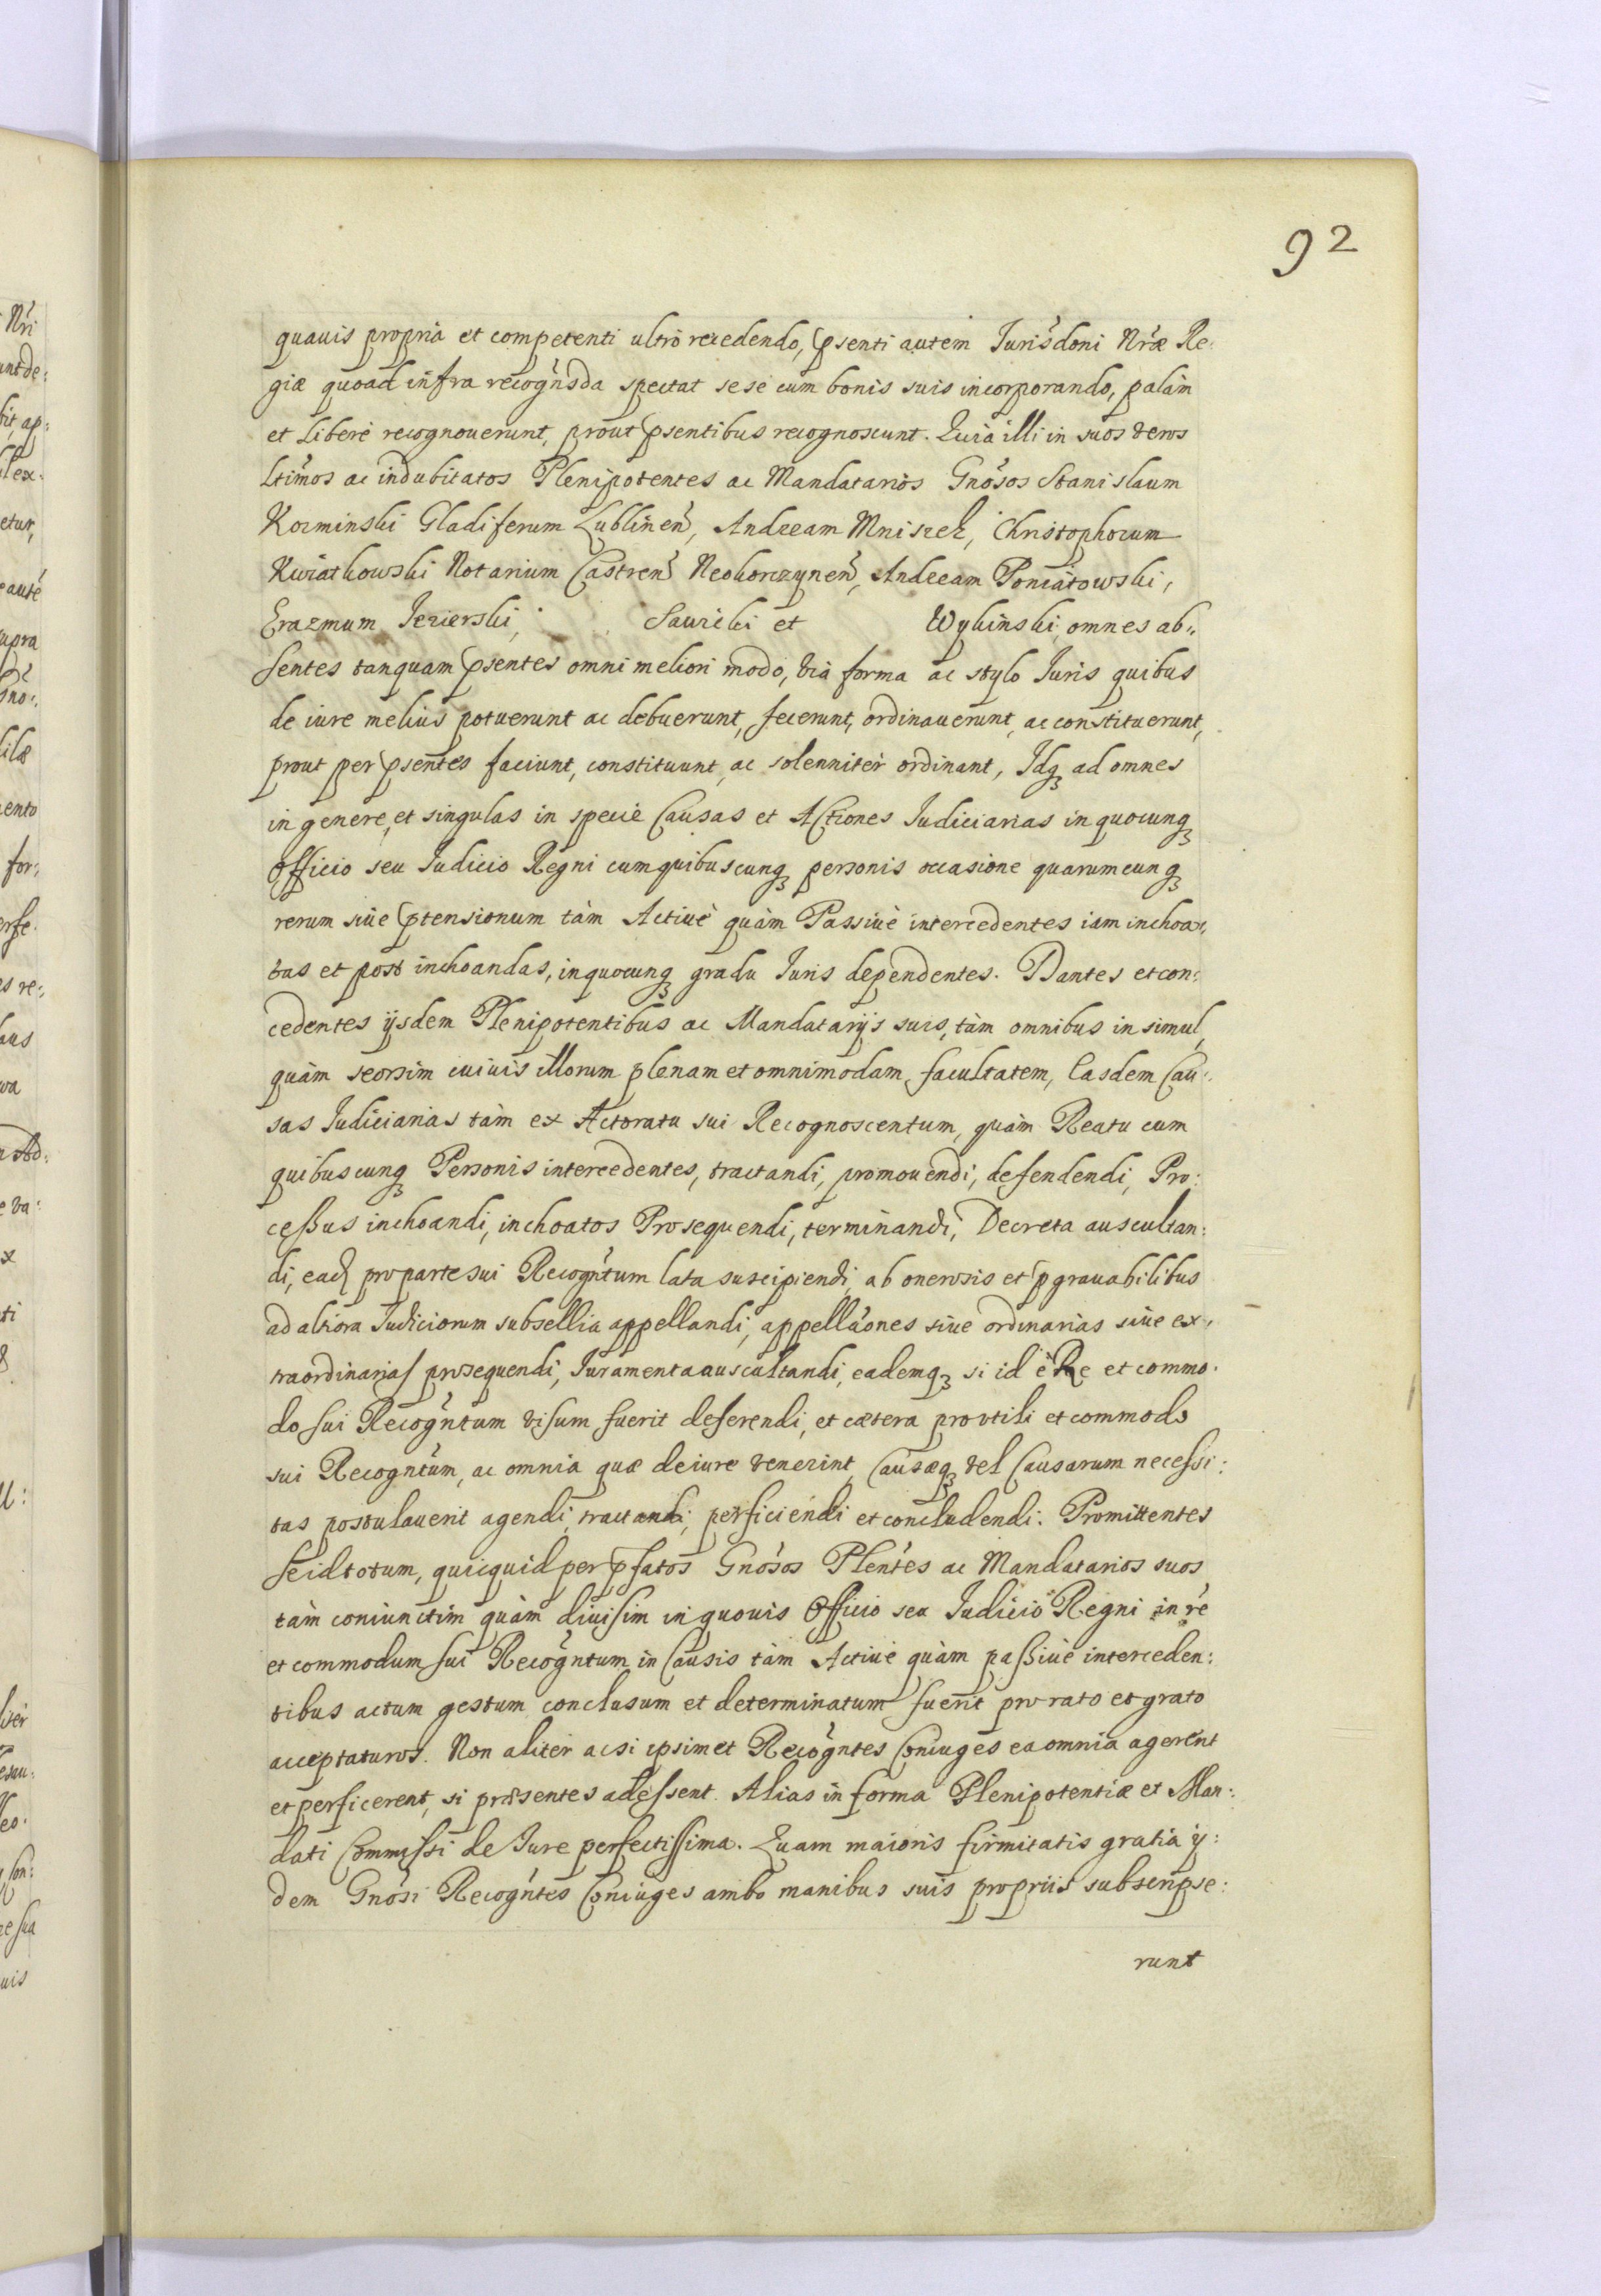 92
quauis propria et competenti ultrò recedendo, psenti autem Jurisdoni Nræ Re:
giæ quoad infra recognsda spectat sese cum bonis suis incorporando, palàm
et liberè recognouerunt, prout psentibus recognoscunt. Quia illi in suos veros
ltimos ac indubitatos Plenipotentes ac Mandatarios Gnosos Stanislaum
Kozminski Gladiferum Lublinen, Andream Mniszek, Christophorum
Kwiatkowski Notarium Castren Neokorczynen, Andream Poniatowski,
Erazmum Jezierski, Sawicki et Wybinski omnes ab:
sentes tanquam psentes omni meliori modo, via forma ac stylo Juris quibus
de iure melius potuerunt ac debuerunt, fecerunt, ordinauerunt, ac constituerunt,
prout per psentes faciunt, constituunt, ac solenniter ordinant, Idq ad omnes
in genere, et singulas in specie Causas et Actiones Judiciarias in quocunq
Officio seu Judicio Regni cum quibuscunq personis occasione quarumcunq
rerum siue ptensionum tàm Actiuè quàm Passiuè intercedentes iam inchoa:
tas et post inchoandas, in quocunq gradu Juris dependentes. Dantes et con:
cedentes ijsdem Plenipotentibus ac Mandatarijs suis, tàm omnibus in simul,
quàm seorsim cuiuis illorum plenam et omnimodam facultatem, Easdem Cau:
sas Judiciarias tàm ex Actoratu sui Recognoscentum, quàm Reatu cum
quibuscunq Personis intercedentes, tractandi, promouendi, defendendi, Pro:
cessus inchoandi, inchoatos Prosequendi, terminandi, Decreta auscultan:
di, eaq pro parte sui Recogntum lata suscipiendi, ab onerosis et pgrauabilibus
ad altiora Judiciorum subsellia appellandi, appellaones siue ordinarias siue ex:
traordinarias prosequendi, Juramenta auscultandi, eademq si id è Re et commo:
do sui Recogntum visum fuerit deferendi, et cætera pro vtili et commodo
sui Recogntum, ac omnia quæ de iure venerint, Causæq vel Causarum necessi:
tas postulauerit agendi, tractandi, perficiendi et concludendi. Promittentes
se id totum, quicquid per pfatos Gnosos Plentes ac Mandatarios suos
tàm coniunctim quàm diuisim in quouis Officio seu Judicio Regni in re
et commodum sui Recogntum in Causis tàm Actiuè quàm passiuè interceden:
tibus actum gestum conclusum et determinatum fuerit pro rato et grato
acceptaturos. Non aliter ac si ipsimet Recogntes Coniuges ea omnia agerent
et perficerent, si præsentes adessent. Alias in forma Plenipotentiæ et Man:
dati Commissi de Jure perfectissima. Quam maioris firmitatis gratia ij:
dem Gnosi Recogntes Coniuges ambo manibus suis propriis subscripse:
runt